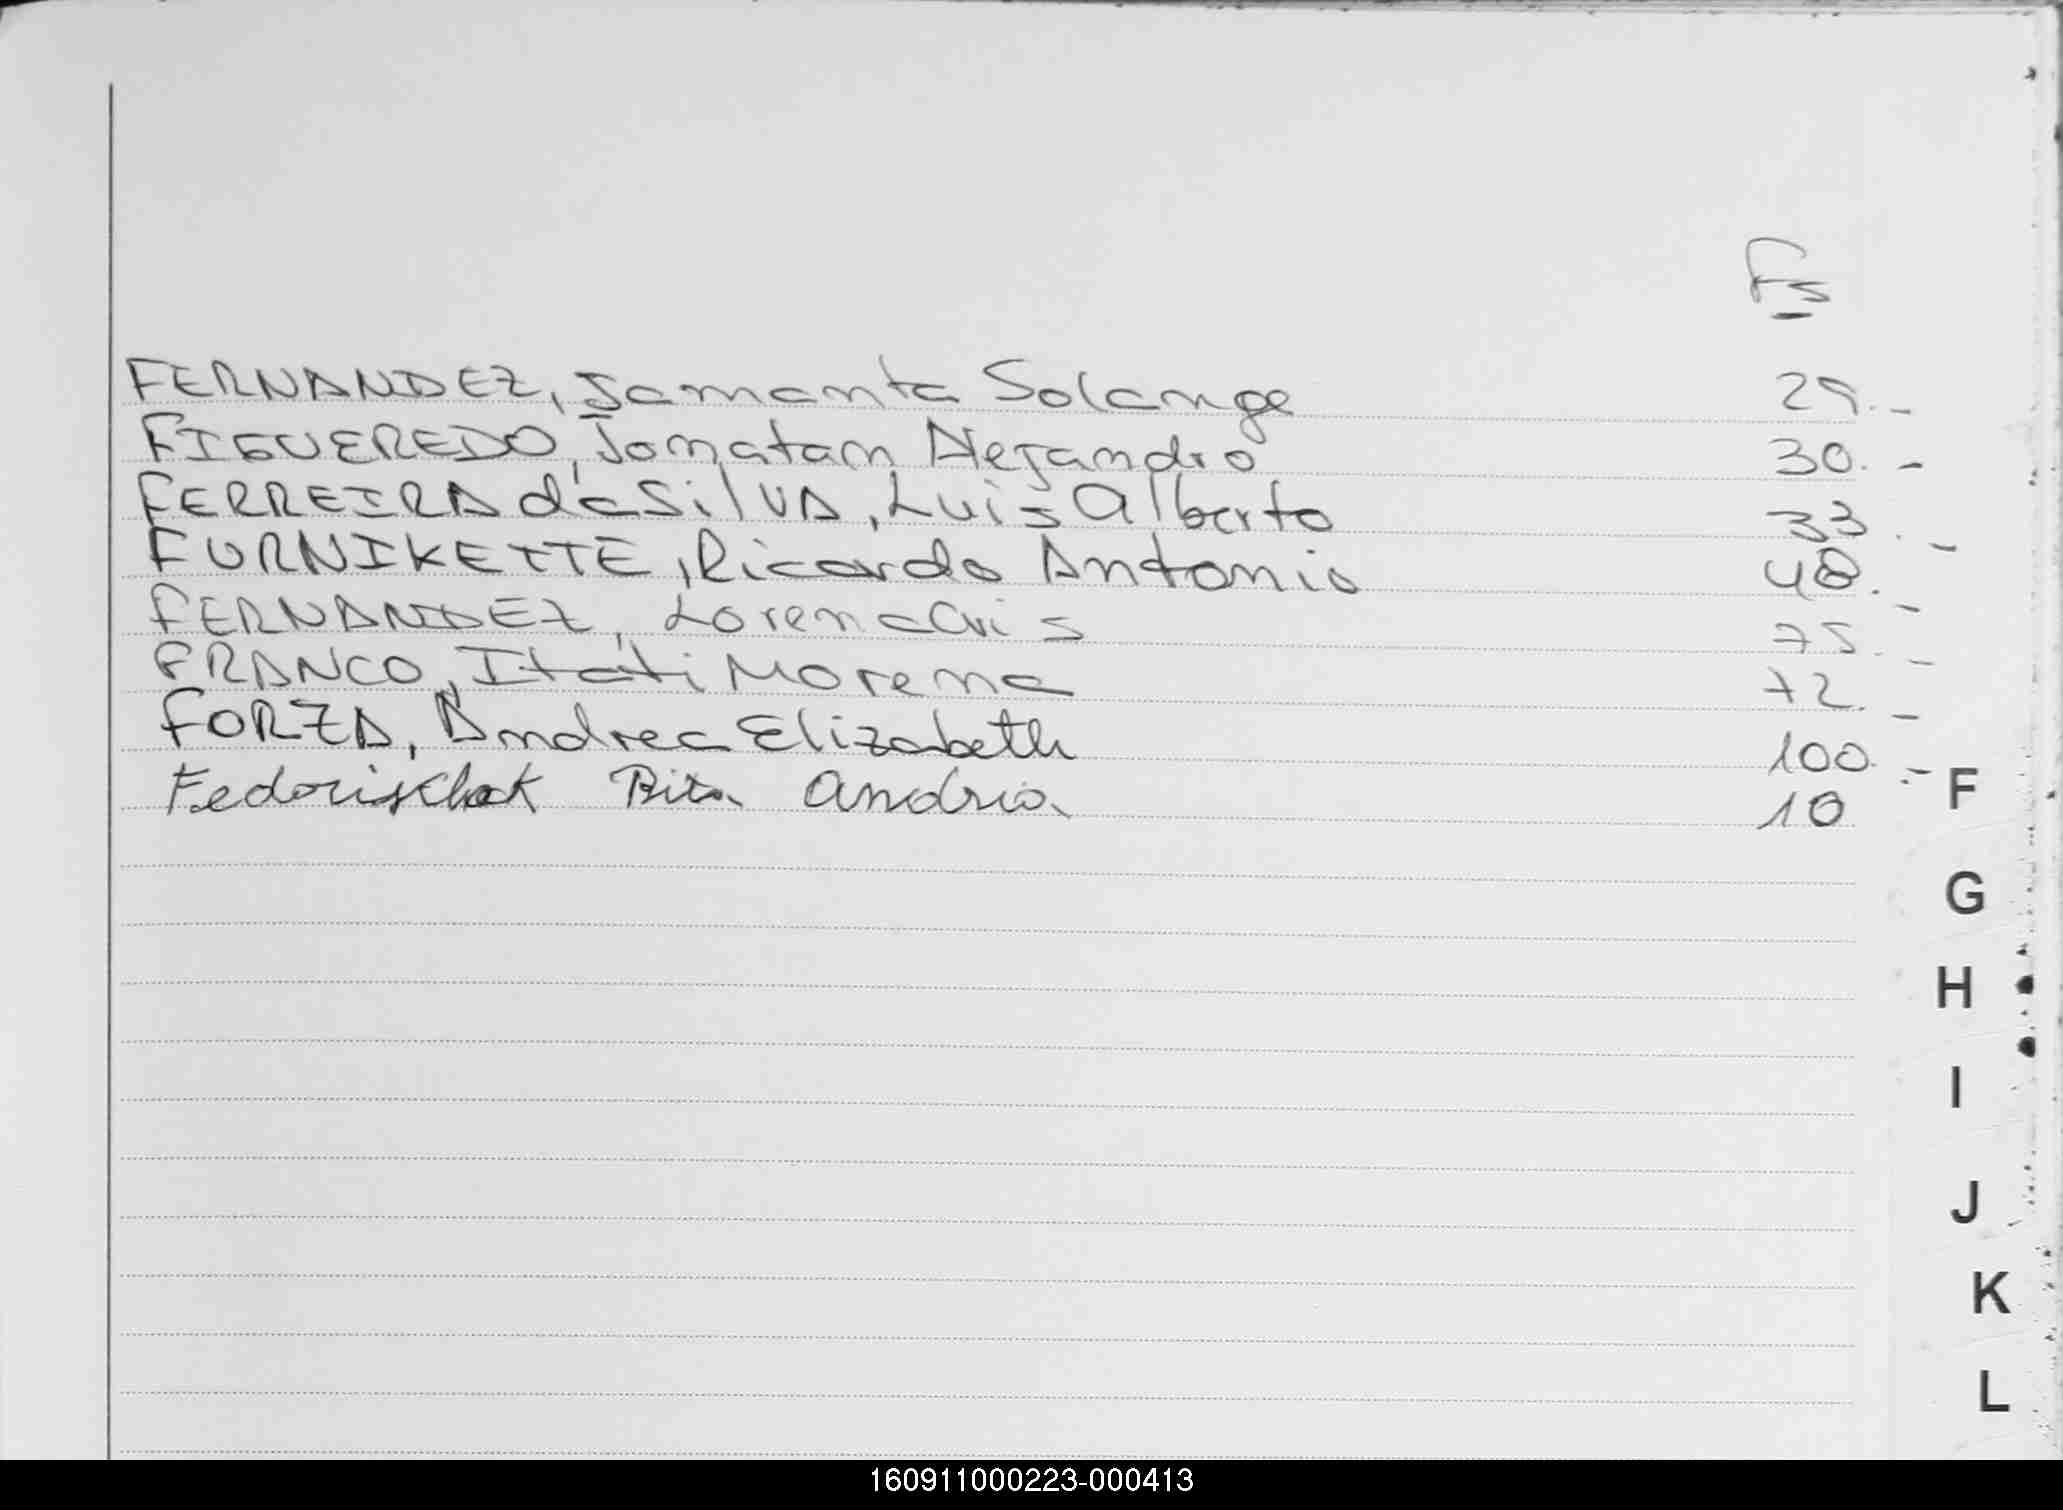 Fs
FERNANDEZ, Samanta Solange 29.-
FIGUEREDO, Jonatan Alejandro 30.-
FERREIRA da SilVA, Luis Alberto 33.-
FURNIKETTE, Ricardo Antonio 48.-
FERNANDEZ, Lorena 75.-
FRANCO, Itatí Morena 72.-
FORZA, Andrea Elizabeth 100.-
Rita 10
F
G
H
I
J
K
L
160911000223-000413